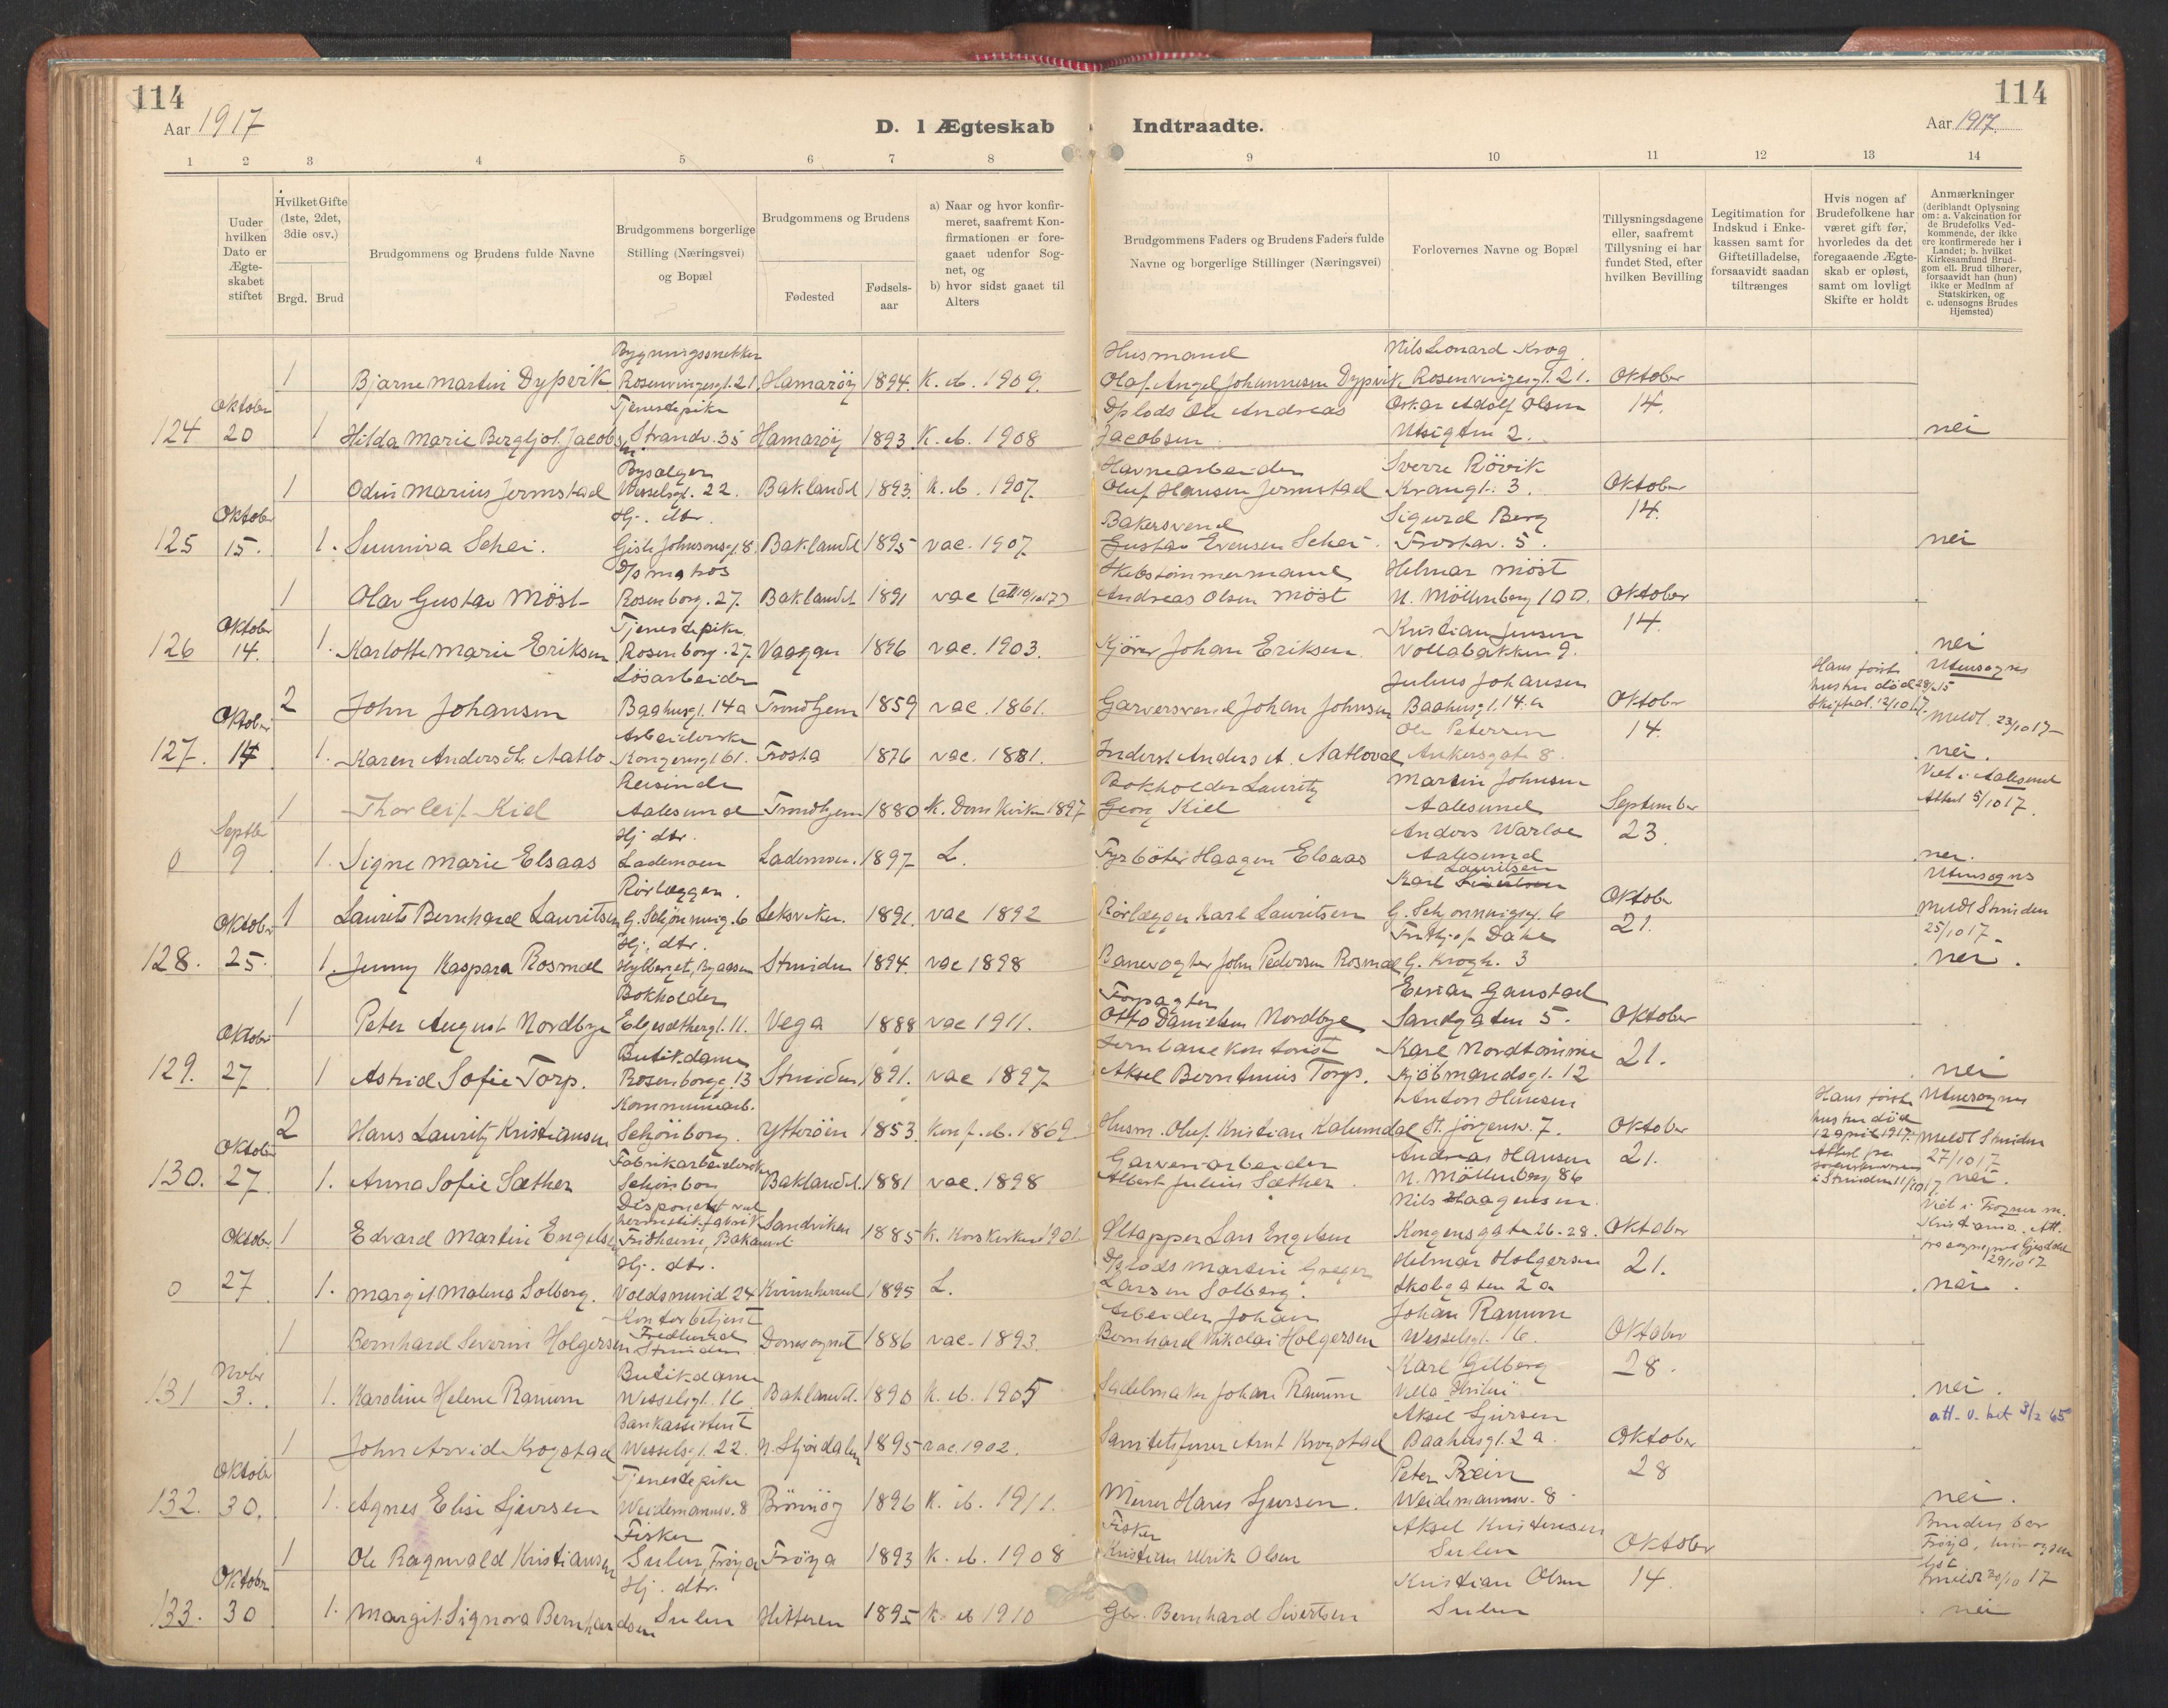 114
Aar 1917
D. I Ægteskab
Indtraadte.
114
Aar 1917.
1 2 3 4 5 6 7 8 9 10 11 12 13 14
Uuder hvilken Dato er Ægte-skabet stiftet
Hvilket Gifte (1ste, 2det, 3die osv.)
Brgd. Brud
Brudgommens og Brudens fulde Navne
Brudgommens borgerlige Stilling (Næringsvei) og Bopæl
Brudgommens og Brudens
Fødested
Fødsels-aar
a) Naar og hvor konfir-meret, saafremt Kon-firmationen er fore-gaaet udenfor Sog-net, og
b) hvor sidst gaaet til Alters
Brudgommens Faders og Brudens Faders fulde Navne og borgerlige Stillinger (Næringsvei)
Forlovernes Navne og Bopæl
Tillysningsdagene eller, saafremt Tillysning ei har fundet Sted, efter hvilken Bevilling
Legitimation for Indskud i Enke-kassen samt for Giftetilladelse, forsaavidt saadan tiltrænges
Hvis nogen af Brudefolkene har været gift før, hvorledes da det foregaaende Ægte-skab er opløst, samt om lovligt Skifte er holdt
Anmærkninger (deriblandt Oplysning om: a. Vakcination for de Brudefolks Ved-kommende, der ikke ere konfirmerede her i Landet; b. hvilket Kirkesamfund Brud-gom ell. Brud tilhører, forsaavidt han (hun) ikke er Medlnm af Statskirken, og c. udensogns Brudes Hjemsted)
Bygningssnekker Husmand Nils Leonard Krog
1 Bjarne Martin Dypvik Rosenvingesgt. 21 Hamarøy 1894. K. ib. 1909. Olaf Angel Johannesen Dypvik Rosenvingesgt. 21. Oktober
Oktober Tjenestepike Ole Andreas Oskar Adolf Olsen 14.
124 20 1 Hilda Marie Bergljot Jacobsen Strandv. 35 Hamarøy 1893 K. ib. 1908 Jacobsen Utsigten 2. nei
Havnearbeider Sverre Rövik
1 Odin Marius Jermstad Wesselsgt. 22. Baklandet 1893. K. ib. 1907. Oluf Hansen Jermstad Krangt. 3. Oktober
Oktober Hj. dtr. Bakersvend Sigurd Berg 14.
125 15. 1. Sunniva Schei. Gisle Johnsonsg. 8. Baklandet 1895 vac. 1907. Gustav Evensen Schei. Frostav. 5. nei
Skibstømmermand Helmar Möst
1 Olav Gustav Möst Rosenborg. 27. Baklandet 1891 vac Andreas Olsen Möst N. Möllenberg 100. Oktober
Oktober Tjenestepike Kristian Jensen 14.
126 14. 1. Karlotte Marie Eriksen Rosenborg. 27. Vaagan 1896 vac. 1903. Kjører Johan Eriksen. Vollabakken 9. nei
Løsarbeider Julius Johansen Hans første Utensogns
2 John Johansen Baahusgt. 14a Trondhjem 1859 vac. 1861. Garversvend Johan Johnsen Baahusgt. 14.a Oktober hustru død 28/ 15 Skifteat. 12/10 17. meldt 23/10 17
Oktober Arbeiderske Ole Petersen 14.
127. 14 1. Karen Andersdtr. Natlo Kongensgt 61. Frosta 1876 vac. 1881. Inderst Anders A. Ankersgate 8. nei.
Reisende Bokholder Lauritz Martin Johnsen Viet i Aalesund
1 Thorleif Kiel Aalesund Trondhjem 1880 K. Domkirken 1897 Georg Kiel Aalesund September Attest 5/10 17.
Septbr Hj. dtr. Anders Warloe 23.
0 9 1. Signe Marie Elsaas Lademoen Lademoen. 1897 L. Fyrbøter Haagen Elsaas Aalesund nei.
Rørlægger. Karl Lauritsen Utensogns
1 Laurits Bernhard Lauritsen G. Schjønningg. 6 Leksviken. 1891. vac 1892 Rørlægger Karl Lauritsen G. Schjønningsg. 6 Oktober meldt Strinden
Oktober Hj. dtr. Frithjof Dahl 21. 25/10 17
128. 25. 1. Jenny Kaspara Rosmæl Hylberget, Byaasen Strinden 1894. vac 1898 Banevogter John Pedersen Rosmæl G. Kroght. 3 nei.
Bokholder Forpagter Einar Gaustad
1 Peter August Nordbye Elgesæthergt. 11. Vega 1888 vac 1911. Otto Danielsen Nordbye Sandgaten 5. Oktober
Oktober Butikdame Jernbanekontorist Karl Nordtømme 21.
129. 27 1 Astrid Sofie Torp. Rosenborgg. 13 Strinden 1891. vac 1897 Aksel Berntinius Torp. Kjøbmandsgt. 12 nei
Kommunearb. Anton Hansen Hans første Utensogns
2 Hans Lauritz Kristiansen Schjønborg. Ytterøen 1853. Konf. ib. 1869. Husm. Oluf Kristian St. Jørgensv. 7. Oktober hustru død 12 april 1917. meldt Strinden
Oktober Fabrikarbeiderske Garveriarbeider Andreas Hansen 21. Attest fra i Strinden 11/10 17. 27/10 17
130. 27. 1. Anna Sofie Sæther Baklandet. 1881 vac. 1898 Albert Julius Sæther. N. Möllenberg 86 nei.
Disponent ved hermetikfabrik Nils Haagensen. Viet i Frogner m.
Oktober 1 Edvard Martin Engelsen Fridheim, Baklandet Sandviken 1885 K. Korskirken 1901 Øltapper Lars Engelsen Kongensgaten 26-28. Oktober Kristiania. Att. 29/10 17
Hj. dtr. Martin Greger Helmar Holgersen 21.
0 27 1. Margit Malena Solberg. Voldsminde 24 Kvinnherred 1895 L. Larsen Solberg. Skolegaten 2a nei.
Kontorbetjent Arbeider Johan Johan Ranum
1 Bernhard Severin Holgersen Fredlund Strinden Domsognet 1886 vac. 1893. Bernhard Nikolai Holgersen Wesselsgt. 16. Oktober
Novbr Butikdame Karl Gilberg 28.
131 3. 1. Karoline Helene Ranum Wesselsgt. 16 Baklandet. 1890 K. ib. 1905 Sadelmaker Johan Ranum Villa nei.
Bankassistent Aksel Sjursen att. v. bet 3/2 65
1 John Arvid Krogstad Wesselsgt. 22. N. Stjørdalen 1895 vac. 1902. Arnt Krogstad Baahusgt. 2a. Oktober
Oktober Tjenestepike Peter Rein 28
132. 30. 1. Agnes Elise Sjursen Weidemannsv. 8 Brönnöy 1896 K. ib. 1911. Murer Hans Sjursen. Weidemannsv. 8. nei.
Fisker Fisker Aksel Kristensen Bruden bor
1 Ole Ragnvald Kristiansen Sulen, Frøya Frøya 1893 K. ib. 1908 Kristian Ulrik Olsen Sulen Oktober Frøya,
Oktober Hj. dtr. Kristian Olsen 14. meldt 30/10 17
133. 30 1. Margit Signora Bernhardsen Sulen Hitteren 1895 K. ib 1910 Gbr. Bernhard Sivertsen Sulen nei